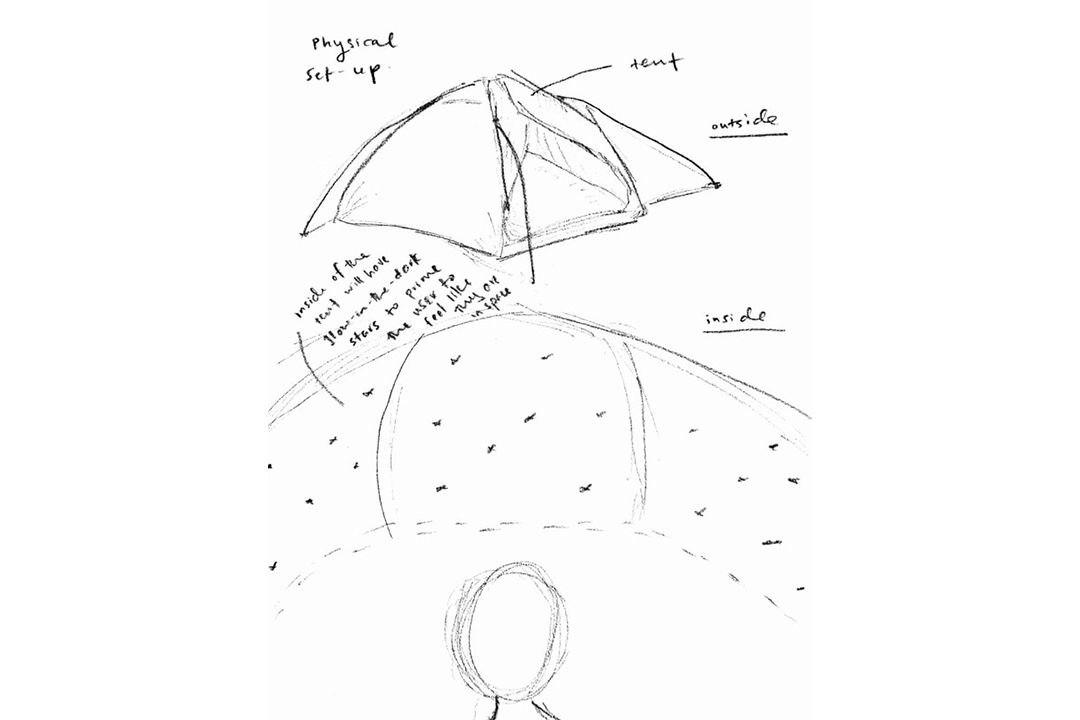 Physical
set-up.
tent
outside
inside of the
tent will have
glow-in-the-dark
stars to prime
the user to
feel like
they are
in space
inside